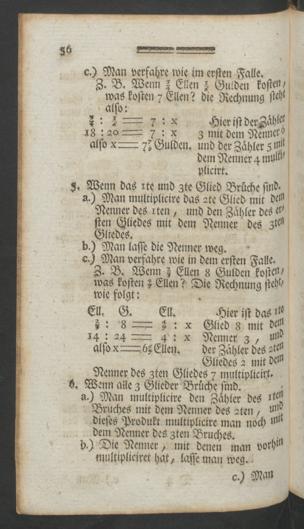 56
c.) Man verfahre wie im ersten Falle.
Z. B. Wenn Ellen Gulden kosten,
was kosten 7 Ellen? die Rechnung steht
also:
7 : x Hier ist der Zähler
18 : 20 = 7 : x 3 mit dem Nenner 6
also x = Gulden. und der Zähler 5 mit
dem Nenner 4 multi-
plicirt.
5. Wenn das 1te und 3te Glied Brüche sind.
a.) Man multiplicire das 2te Glied mit dem
Nenner des 1ten, und den Zähler des er-
sten Gliedes mit dem Nenner des 3ten
Gliedes.
b.) Man lasse die Nenner weg.
c.) Man verfahre wie in dem ersten Falle.
Z. B. Wenn Ellen 8 Gulden kosten,
was kosten Ellen? Die Rechnung steht,
wie folgt:
Ell. G. Ell. Hier ist das 1te
: 8 = : x Glied 8 mit dem
14 : 24 = 4 : x Nenner 3, und
also x = Ellen. der Zähler des 2ten
Gliedes 2 mit dem
Nenner des 3ten Gliedes 7 multiplicirt.
6. Wenn alle 3 Glieder Brüche sind.
a.) Man multiplicire den Zähler des 1ten
Bruches mit dem Nenner des 2ten, und
dieses Produkt multiplicire man noch mit
dem Nenner des 3ten Bruches.
b.) Die Nenner, mit denen man vorhin
multipliciret hat, lasse man weg.
c.) Man